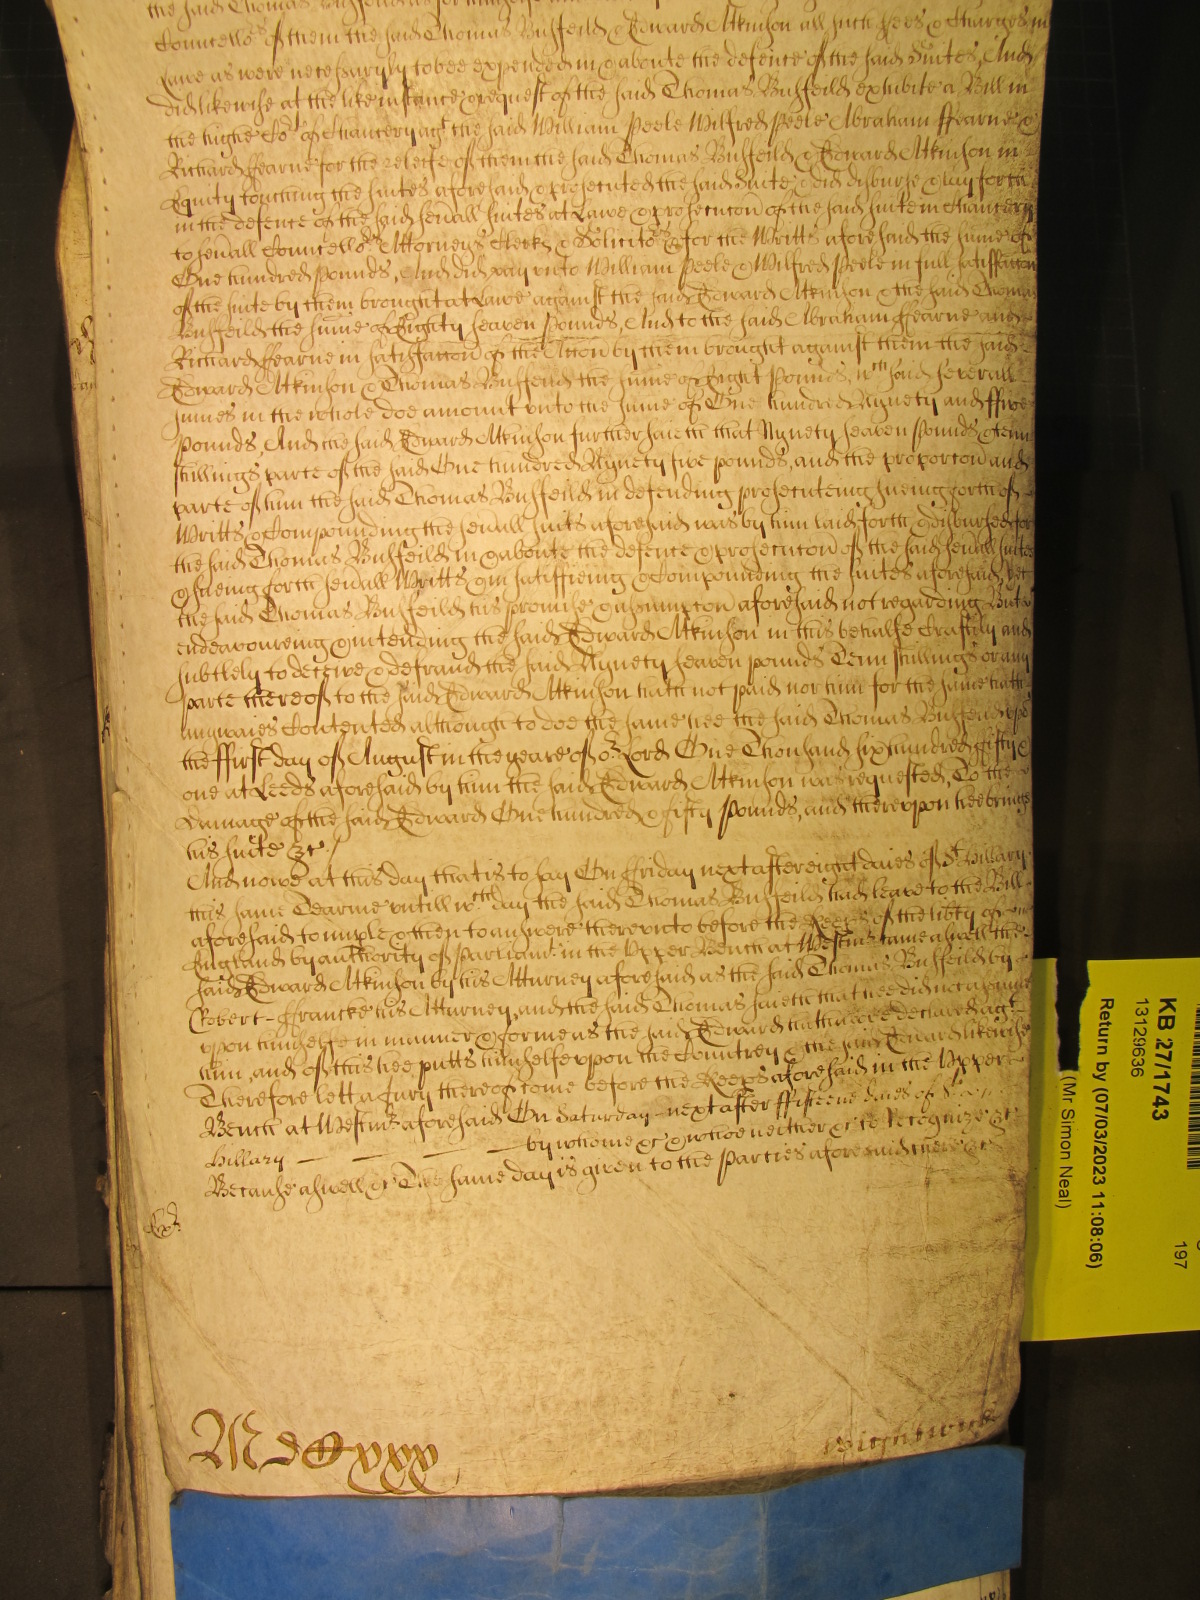 the said Thomas Bushfeild
Councello:rs of them the said Thomas Bushfeild & Edward Atkinson all such fees & Charges in
Lawe as were necessaryly to bee expended in & aboute the defence of the said Suites, And
did likewise at the like instance & request of the said Thomas Bushfeild exhibite a Bill in
the highe Co:rt of Chancery ag:t the said William Peele Wilfred Peele Abraham ffearne &
Richard ffearne for the releife of them the said Thomas Bushfeild & Edward Atkinson in
Equity touching the suites aforesaid & prosecuted the said Suite & did disburse & lay forth
in the defence of the said sev:all suites at Lawe & prosecucon of the said suite in Chancery
to sev:all Councello:rs Attorneys Clerks & Solicito:rs & for the Writts aforesaid the sume of
One hundred pounds, And did pay unto William Peele & Wilfred Peele in full satisfaccon
of the suite by them brought at Lawe against the said Edward Atkinson & the said Thomas
Bushfeild the sume of Eighty seaven pounds, And to the said Abraham ffearne and
Richard ffearne in satisfaccon of the Accon by them brought against them the said
Edward Atkinson & Thomas Bushfeild the sume of Eight pounds, w:ch said severall
sumes in the whole doe amount unto the sume of One hundred Nynety and ffive
pounds, And the said Edward Atkinson further saieth that Nynety seaven pounds & tenn
shillings parte of the said One hundred Nynety five pounds, and the proporcon and
parte of him the said Thomas Bushfeild in defending prosecuteing sueing forth of
Writts & Compounding the sev:all suits aforesaid was by him laid forth & disbursed for
the said Thomas Bushfeild in & aboute the defence & prosecucon of the said sev:all suites
& sueing forth sev:all Writts & in satisfieing & Compounding the suites aforesaid, yet
the said Thomas Bushfeild his promise & assumpcon aforesaid not regarding But
endeavoureing & intending the said Edward Atkinson in this behalfe Craftily and
subtlely to deceive & defraud the said Nynety seaven pounds Tenn shillings or any
parte thereof to the said Edward Atkinson hath not paid nor him for the same hath
anywaies Contented although to doe the same hee the said Thomas Bushfeild upon
the ffirst day of August in the yeare of o:r Lord One Thousand six hundred fifty &
one at Leeds aforesaid by him the said Edward Atkinson was requested, To the
Damage of the said Edward One hundred & fifty pounds, and thereupon hee brings
his suite &c /
And nowe at this day that is to say On ffriday next after eight daies of S:t Hillary
this same Tearme untill w:ch day the said Thomas Bushfeild had leave to the Bill
aforesaid to imple & then to answere thereunto before the Keeps of the lib:ty of
England by authority of Parliam:t in the Upper Bench at Westm:r came aswell the
said Edward Atkinson by his Atturney aforesaid as the said Thomas Bushfeild by
Robert ffrancke his Atturney, and the said Thomas saieth that hee did not assume
upon himselfe in manner & forme as the said Edward hath above declared ag:t
him, and of this hee putts himselfe upon the Countrey & the said Edward likewise
Therefore lett a Jury thereof come before the Keeps aforesaid in the Upper
Bench at Westm:r aforesaid On Saturday next after ffifteene daies of S:t
Hillary by whome &c & whoe neither &c to Recognize &c
Because aswell &c The same day is given to the Parties aforesaid there &c
Ex:r
MdCxxx
Wightwick
KB 27/1743
13129636
Return by (07/03/2023 11:08:06)
(Mr Simon Neal)
197